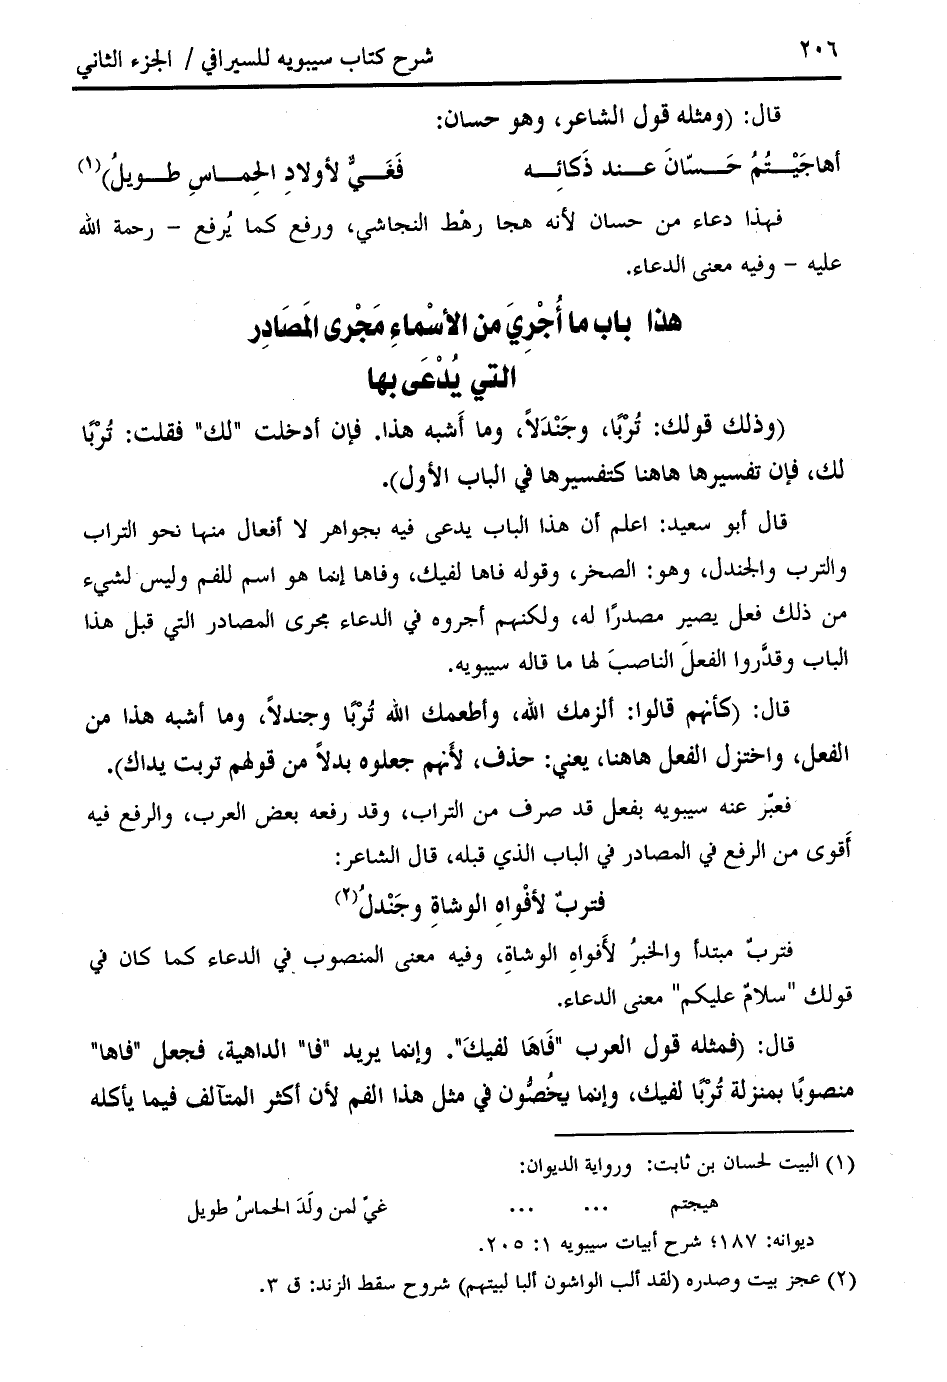 ٢٠٦
شرح كتاب سيبويه للسيرافي / الجزء الثاني
قال: (ومثله قول الشاعر، وهو حسان:
أهاجَيْـتُمُ حَـسّانَ عـند ذَكائِـه فَغَـيٌّ لأولادِ الحِمـاسِ طـويلُ)(١)
فهذا دعاء من حسان لأنه هجا رهْط النجاشي، ورفع كما يُرفع – رحمة الله
عليه – وفيه معنى الدعاء.
هذا باب ما أُجْرِيَ مَن الأسْماءِ مَجْرى المَصَادِر
التي يُدْعَى بها
(وذلك قولك: تُرْبًا، وجَنْدَلاً، وما أَشبه هذا. فإن أدخلت "لك" فقلت: تُرْبًا
لك، فإن تفسيرها هاهنا كتفسيرها في الباب الأول).
قال أبو سعيد: اعلم أن هذا الباب يدعى فيه بجواهر لا أفعال منها نحو التراب
والترب والجندل، وهو: الصخر، وقوله فاها لفيك، وفاها إنما هو اسم للفم وليس لشيء
من ذلك فعل يصير مصدرًا له، ولكنهم أجروه في الدعاء مجرى المصادر التي قبل هذا
الباب وقدَّروا الفعلَ الناصبَ لها ما قاله سيبويه.
قال: (كأنهم قالوا: ألزمك الله، وأطعمك الله تُرْبًا وجندلاً، وما أشبه هذا من
الفعل، واختزل الفعل هاهنا، يعني: حذف، لأَنهم جعلوه بدلاً من قولهم تربت يداك).
فعبّر عنه سيبويه بفعل قد صرف من التراب، وقد رفعه بعض العرب، والرفع فيه
أَقوى من الرفع في المصادر في الباب الذي قبله، قال الشاعر:
فتربٌ لأفْواهِ الوشاةِ وجَنْدلُ(٢)
فتربٌ مبتدأ والخبرُ لأَفواهِ الوشاةِ، وفيه معنى المنصوب في الدعاء كما كان في
قولك "سلامٌ عليكم" معنى الدعاء.
قال: (فمثله قول العرب "فَاهَا لفيكَ". وإنما يريد "فا" الداهية، فجعل "فاها"
منصوبًا بمنزلة تُرْبًا لفيك، وإنما يخُصُّون في مثل هذا الفم لأن أكثر المتآلف فيما يأكله
(١) البيت لحسان بن ثابت: ورواية الديوان:
هيجتم ... ... غيّ لمن ولَدَ الحماسُ طويل
ديوانه: ١٨٧؛ شرح أبيات سيبويه ١: ٢٠٥.
(٢) عجز بيت وصدره (لقد ألب الواشون ألبا لبيتهم) شروح سقط الزند: ق ٣.